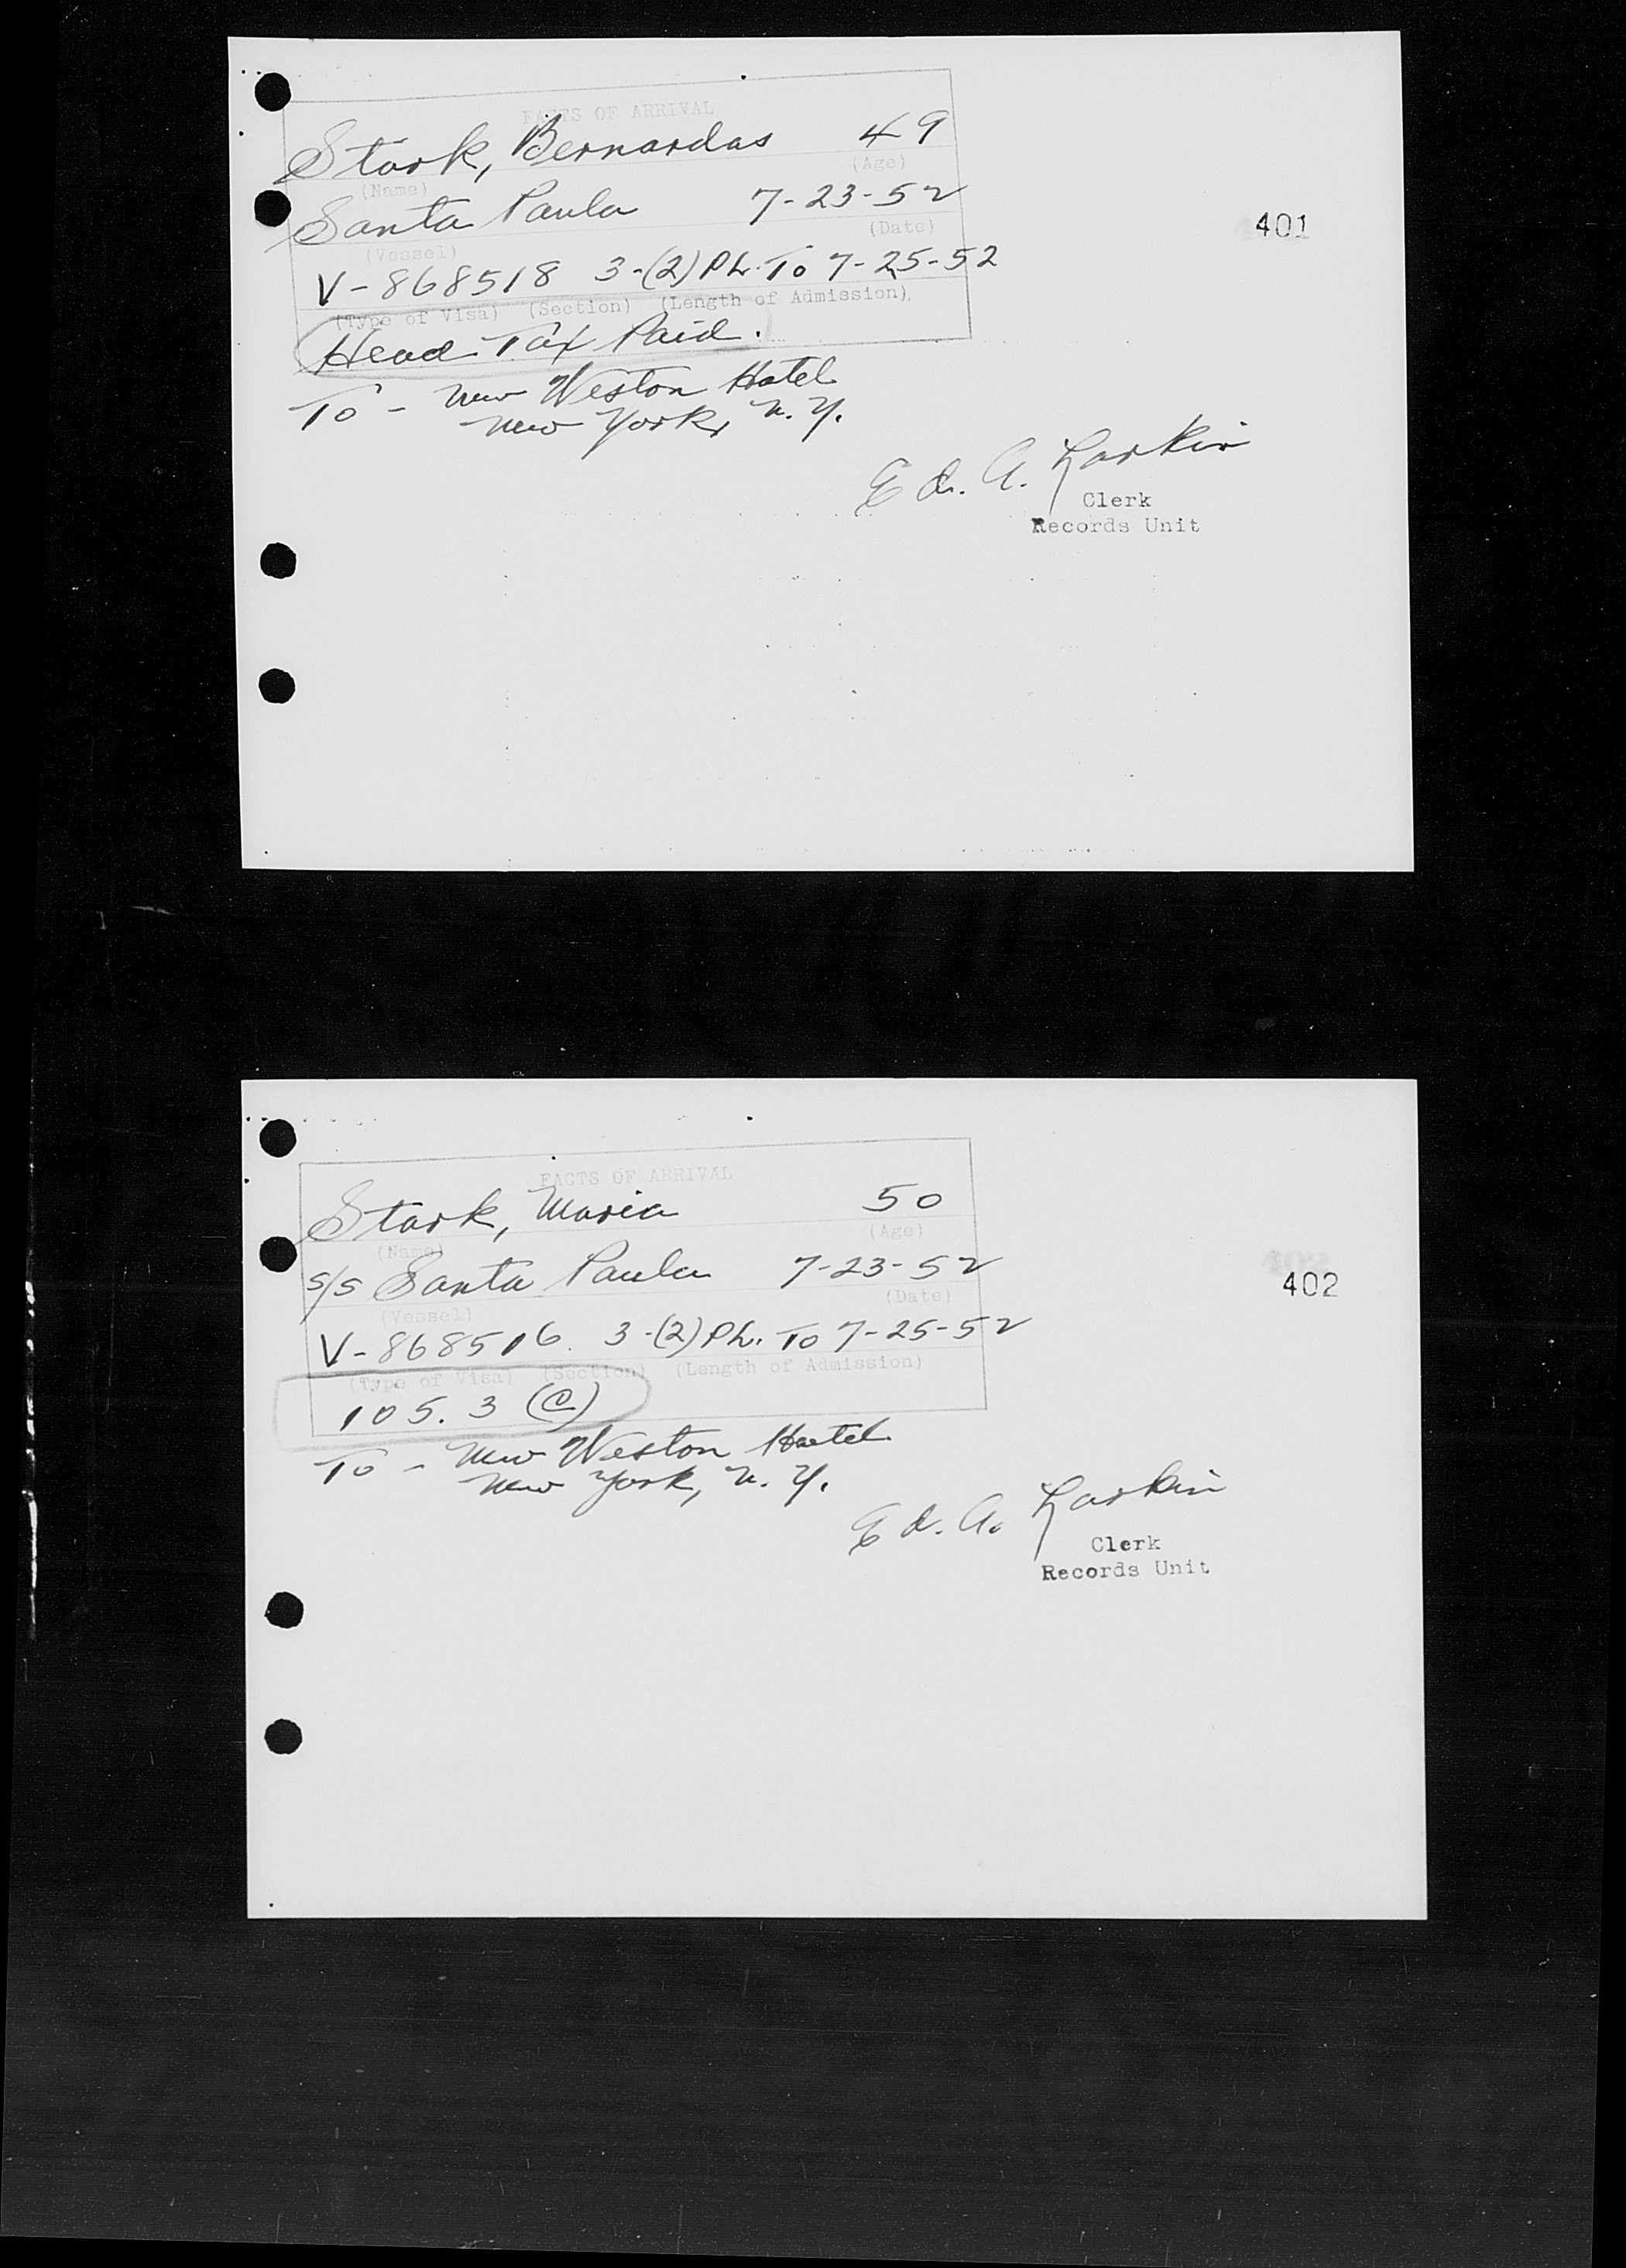 FACTS OF ARRIVAL
Stark, Bernardas 49
(Name) (Age)
Santa Paula 7-23-52
(Vessel) (Date)
401
V-868518 3-(2) Ph. To 7-25-52
(Type of Visa) (Section) (Length of Admission)
Head Tax Paid.
To - New Weston Hotel
New York, N. Y.
Ed. A. Larkin
Clerk
Records Unit
FACTS OF ARRIVAL
Stark, Maria 50
(Name) (Age)
s/s Santa Paula 7-23-52
(Vessel) (Date)
402
V-868516 3-(2) Ph. To 7-25-52
(Type of Visa) (Section) (Length of Admission)
105.3 (c)
To - New Weston Hotel
New York, N. Y.
Ed. A. Larkin
Clerk
Records Unit